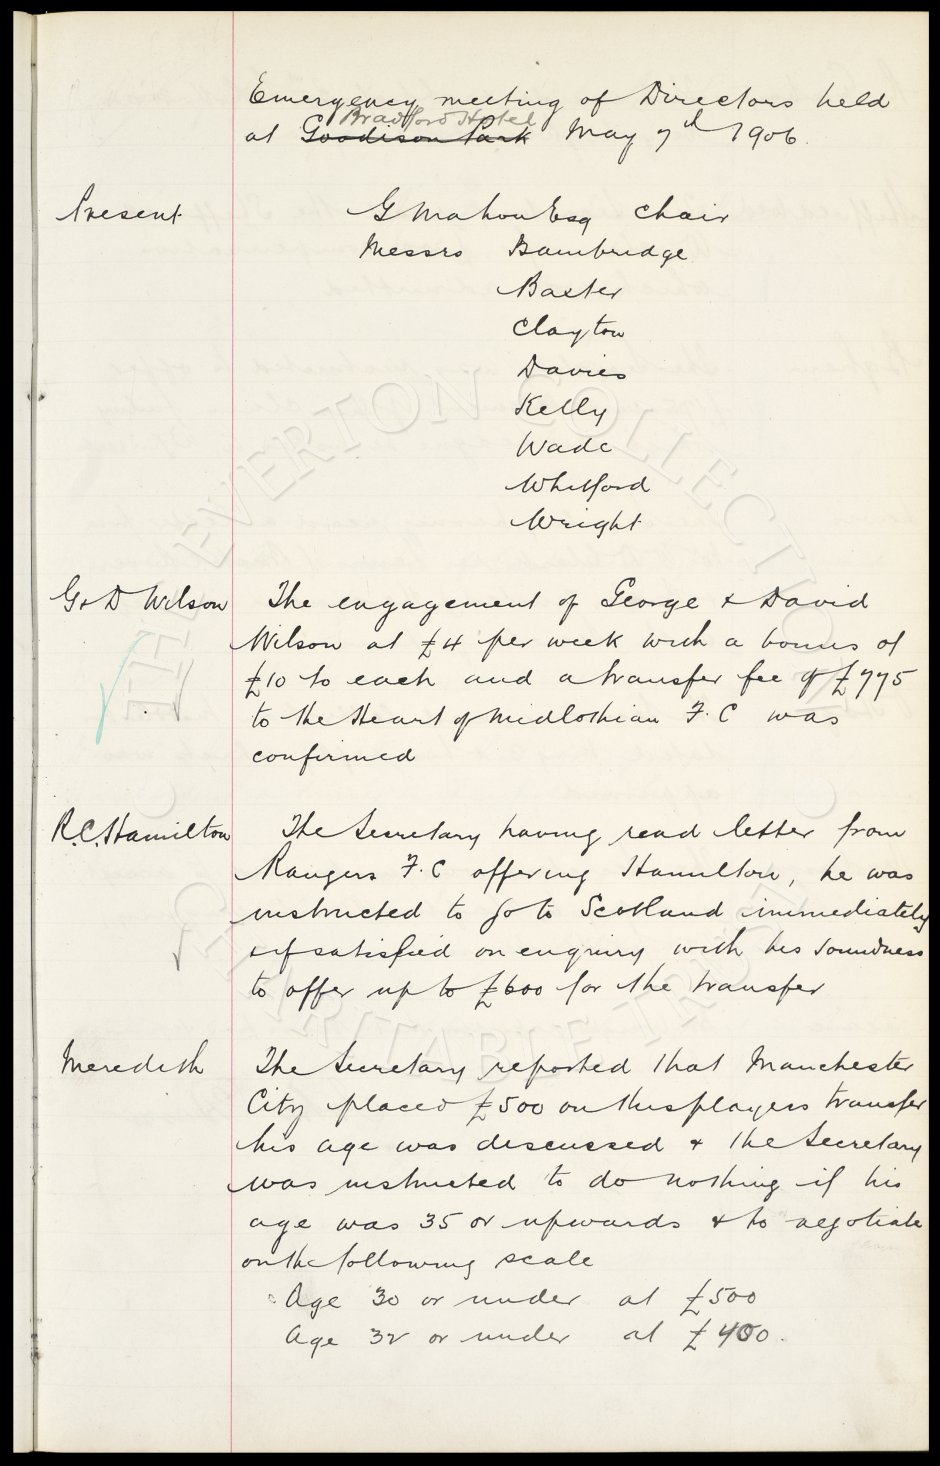 Emergency meeting of Directors held
Bradford Hotel
at Goodison Park May 7th 1906.
Present
G Mahon Esq Chair
Messrs Bainbridge
Baxter
Clayton
Davies
Kelly
Wade
Whitford
Wright
G & D Wilson The engagement of George & David
Wilson at £4 per week with a bonus of
£10 to each and a transfer fee of £775
to the Heart of Midlothian F.C was
confirmed
R.C. Hamilton The Secretary having read letter from
Rangers F.C offering Hamilton, he was
instructed to go to Scotland immediately
& if satisfied on enquiry with his soundness
to offer up to £600 for the transfer
Meredith The Secretary reported that Manchester
City placed £500 on this players transfer
his age was discussed & the Secretary
was instructed to do nothing if his
age was 35 or upwards & to negotiate
on the following scale
Age 30 or under at £500
Age 32 or under at £400.
THE EVERTON COLLECTION
CHARITABLE TRUST